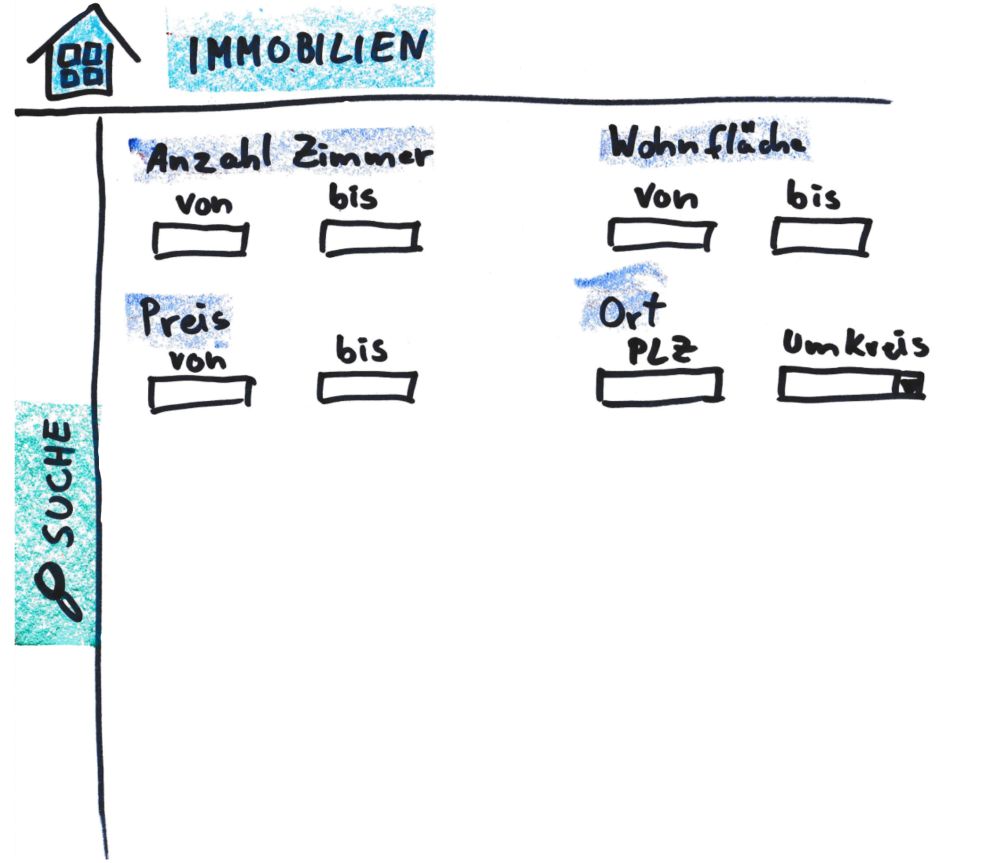 IMMOBILIEN
Anzahl Zimmer
von bis
Wohnfläche
von bis
Preis
von bis
Ort
PLZ Umkreis
SUCHE